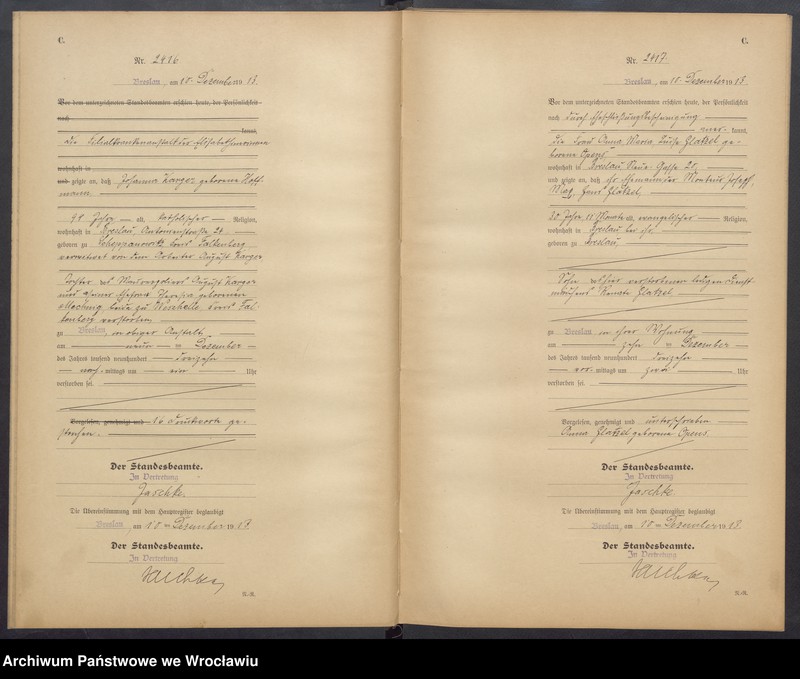 C.
Nr. 2416
Breslau, am 10. Dezember 1913.
Vor dem unterzeichneten Standesbeamten erschien heute, der Persönlichkeit
nach
kannt,
die
wohnhaft in
und zeigte an, daß Johanna Kargoz geborene Hoff-
mann
49 Jahre alt, katholischer Religion,
wohnhaft in Breslau, 24
geboren zu Kreis Falkenberg
verheiratet mit dem Arbeiter August Kargoz
Tochter des August
und seiner Ehefrau geborenen
beide zu Kreis Fal-
kenberg verstorben
zu Breslau, in obiger Anstalt
am neun ten Dezember
des Jahres tausend neunhundert dreizehn
nach mittags um ein Uhr
verstorben sei.
Vorgelesen, genehmigt und 16 Druckworte ge-
strichen.
Der Standesbeamte.
In Vertretung
Jaschke.
Die Übereinstimmung mit dem Hauptregister beglaubigt
Breslau, am 10 ten Dezember 1913.
Der Standesbeamte.
In Vertretung
N.-R.
C.
Nr. 2417
Breslau, am 10. Dezember 1913.
Vor dem unterzeichneten Standesbeamten erschien heute, der Persönlichkeit
nach durch Eheschließungsbescheinigung
aner kannt,
die Frau Anna Maria Luise Glatzel ge-
borene Opens
wohnhaft in Breslau Neue Gasse 20,
und zeigte an, daß ihr Ehemann der Monteur Joseph,
Max, Hans Glatzel,
20 Jahre 11 Monate alt, evangelischer Religion,
wohnhaft in Breslau bei ihr
geboren zu Breslau,
Sohn der hier verstorbenen ledigen Dienst-
mädchens Renate Glatzel
zu Breslau in ihrer Wohnung
am zehn ten Dezember
des Jahres tausend neunhundert dreizehn
vor mittags um zwei Uhr
verstorben sei.
Vorgelesen, genehmigt und unterschrieben
Anna Glatzel geborene Opens.
Der Standesbeamte.
In Vertretung
Jaschke.
Die Übereinstimmung mit dem Hauptregister beglaubigt
Breslau, am 10 ten Dezember 1913.
Der Standesbeamte.
In Vertretung
N.-R.
Archiwum Państwowe we Wrocławiu